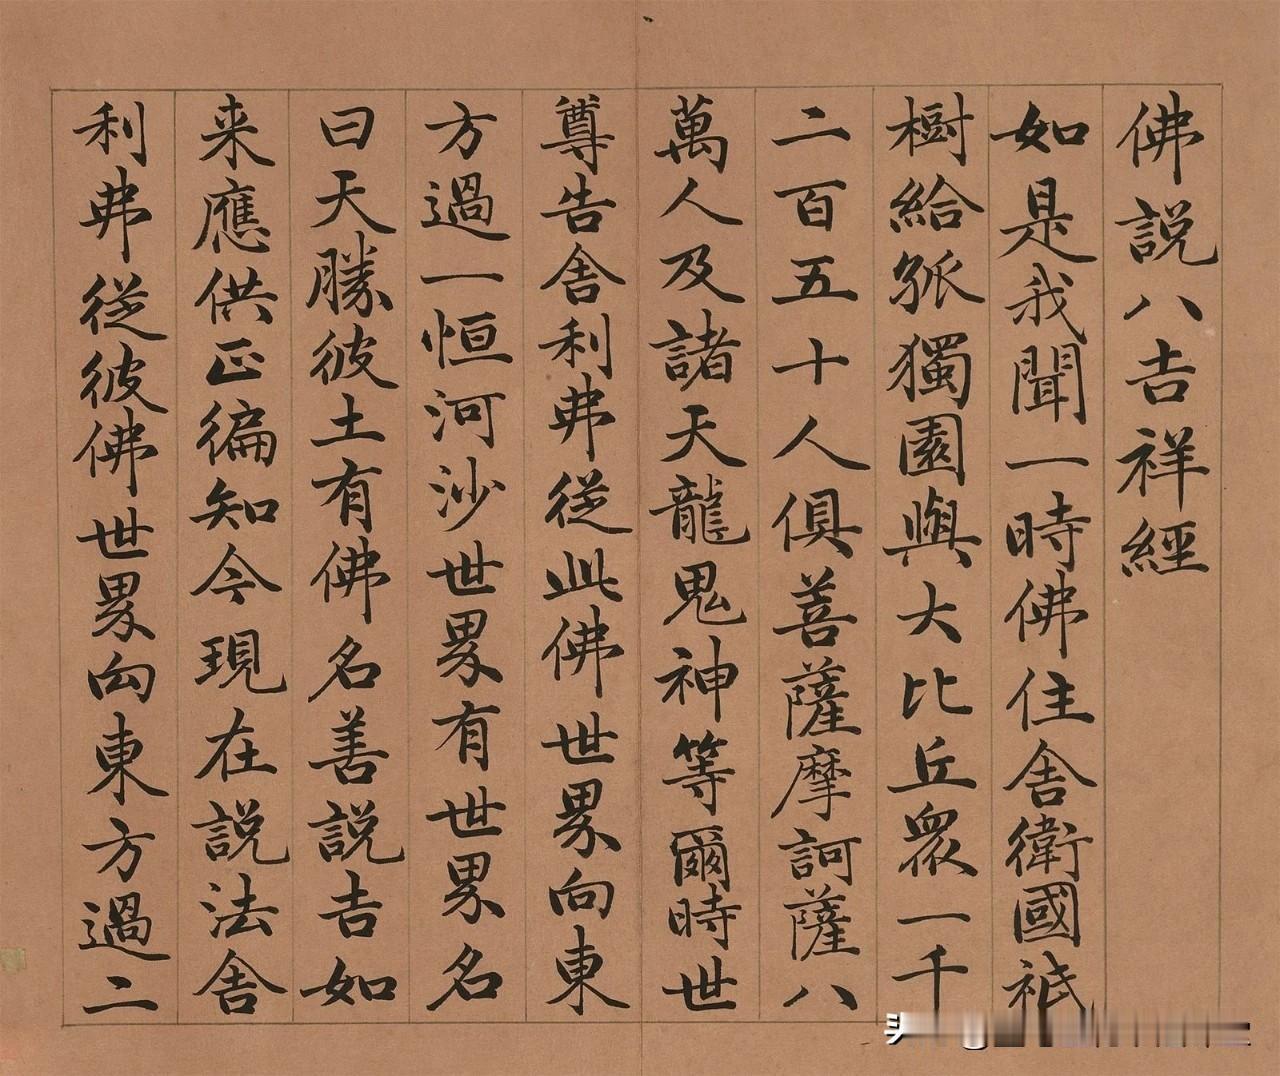 佛説八吉祥經
如是我聞一時佛住舍衛國祇
樹給孤獨園與大比丘眾一千
二百五十人俱善薩摩訶薩八
萬人及諸天龍鬼神等爾時世
尊告舍利弗從此佛世界向東
方過一恒河沙世界有世界名
曰天勝彼土有佛名善説吉如
来應供正徧知今現在説法舍
利弗從彼佛世界向東方過二